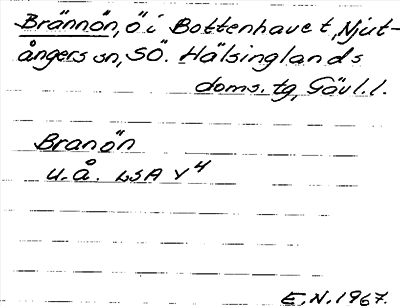 Brännön, ö i Bottenhavet, Njut-
ångers sn, SÖ. Hälsinglands
doms. tg, Gävl. l.
Branön
u.å. LSA Y4
E.N. 1967.